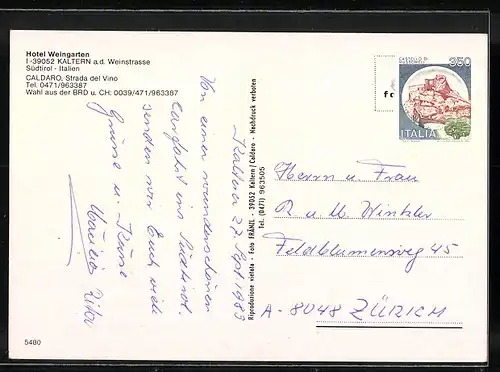 Hotel Weingarten
I-39052 KALTERN a.d. Weinstrasse
Südtirol - Italien
CALDARO, Strada del Vino
Tel. 0471/963387
Wahl aus der BRD u. CH: 0039/471/963387
Kaltern 27. Sept 1983
Von einer wunderschönen
Carfahrt ins Südtirol
senden wir Euch viele
Grüsse u. Küsse
Rita
Riproduzione vietata - Foto FRÄNZL - 39052 Kaltern/Caldaro - Nachdruck verboten
Tel. (0471) 963505
350
ITALIA
fo
Herrn u. Frau
R u. M. Winkler
Feldblumenweg 45
A - 8048 ZÜRICH
5480